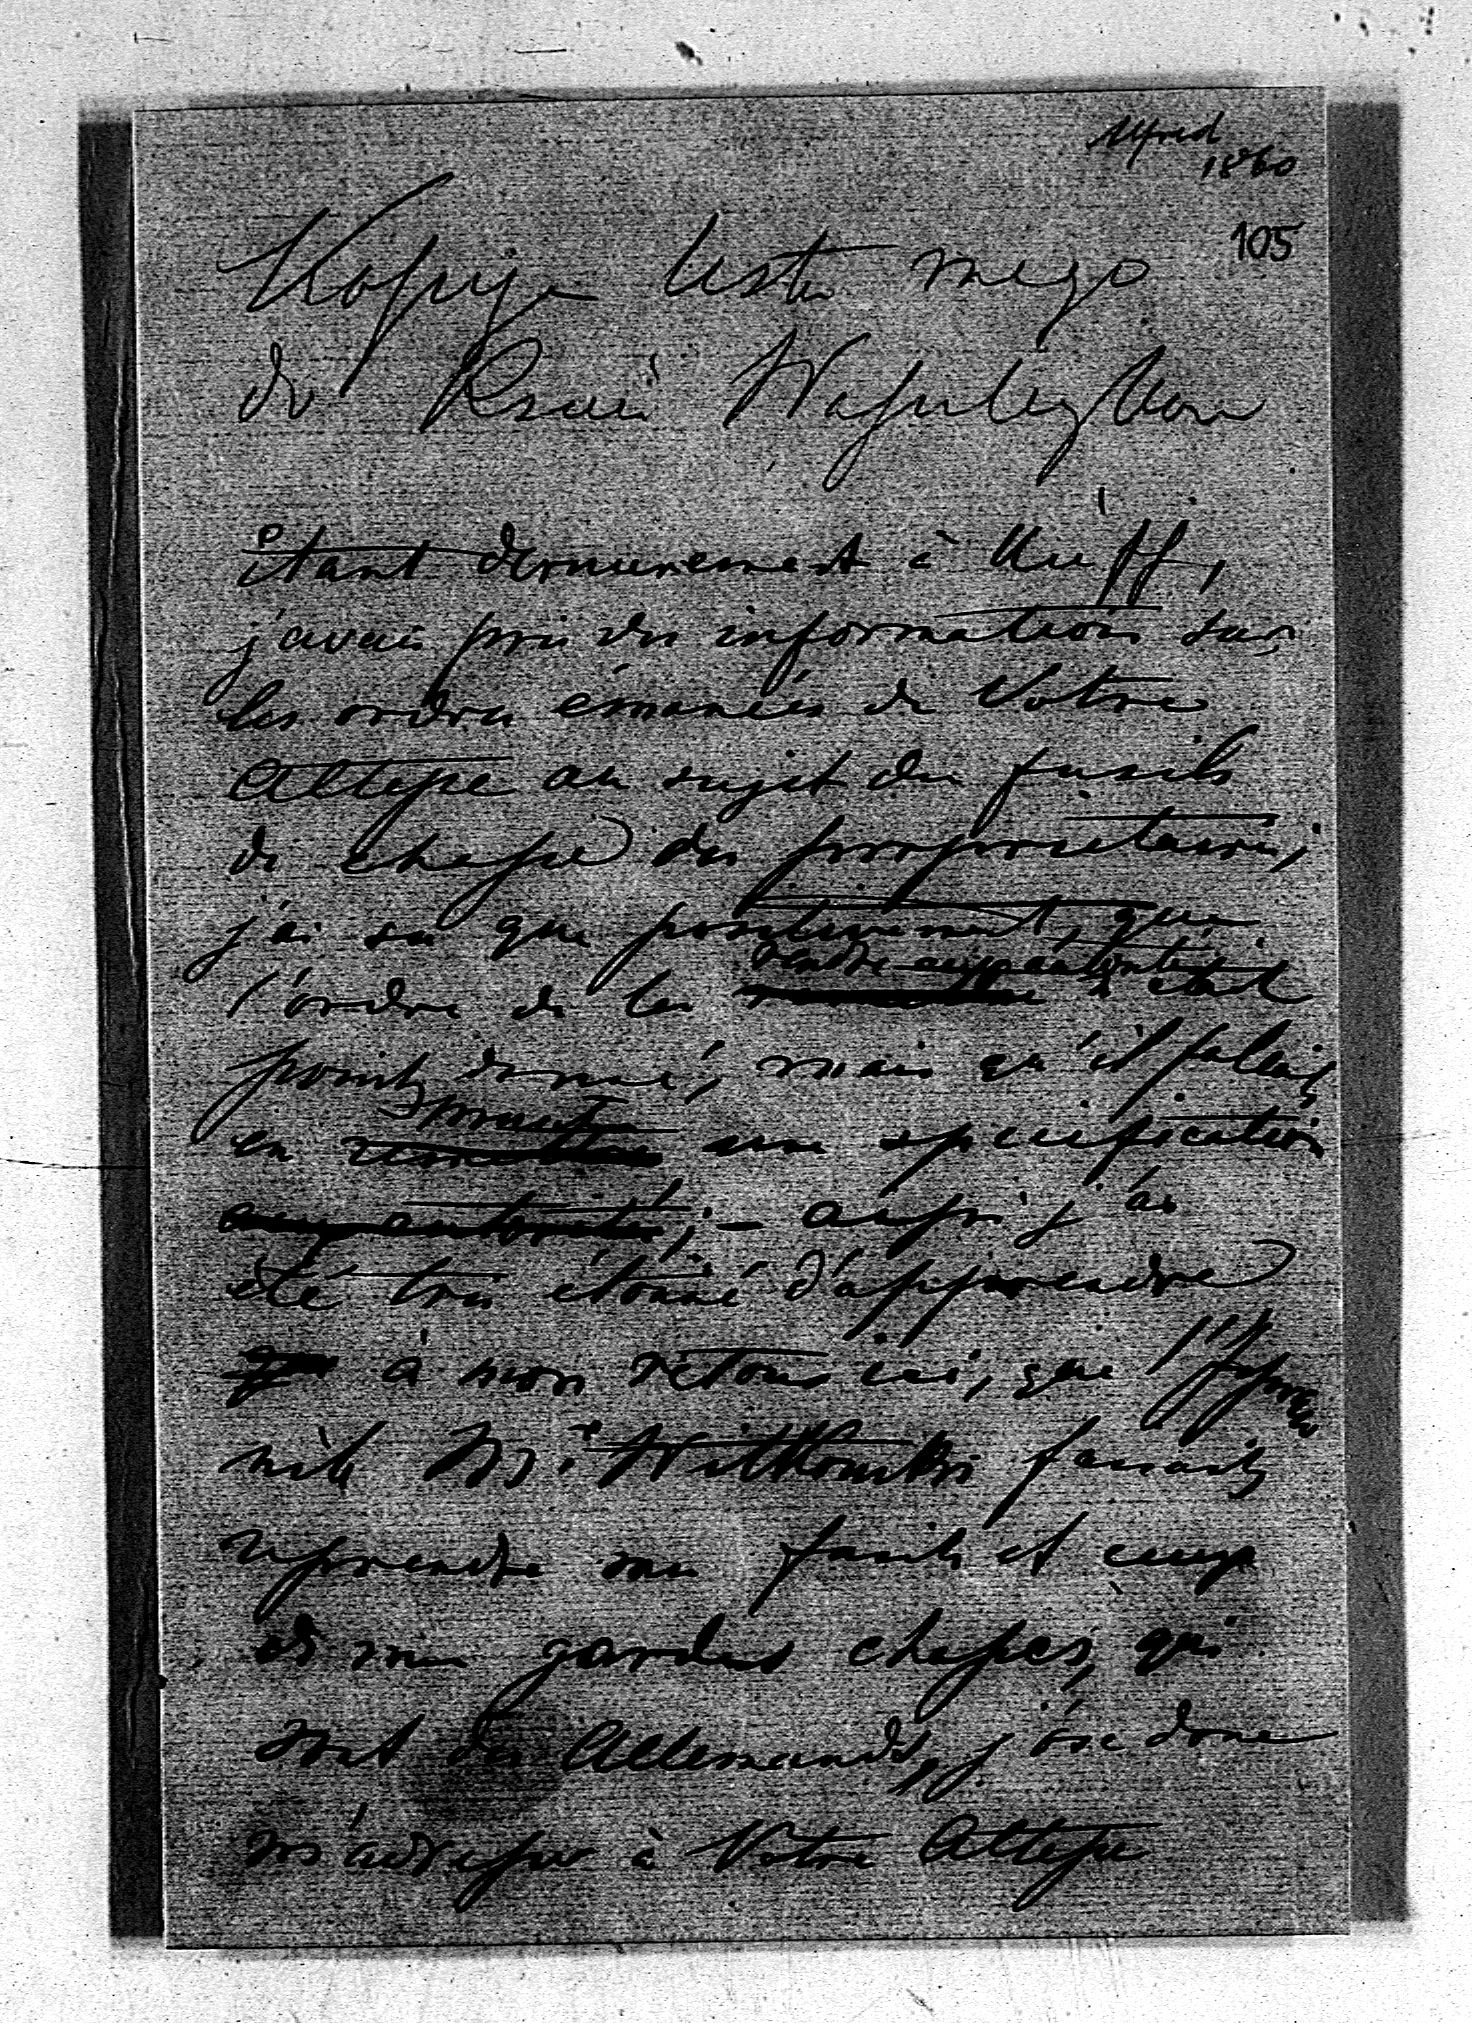 Alfred
1860
105
Kopija listu mego
do Księcia Wasilczykowa
étant dernièrement à Kieff,
j'avais pris des informations sur
les ordres émanés de Votre
Altesse au sujet des fusils
de chasse des propriétaires,
j'ai su que positivement, que
rendre
l'ordre de les n'était
point donné, mais qu'il fallait
en une spécification
aux autorités; – aussi j'ai
été très étonné d'apprendre
à mon retour ici, que
nik Mr Witkowski faisait
reprendre mes fusils et ceux
de mes gardes chasses, qui
sont des Allemands, j'ose donc
m'adresser à Votre Altesse